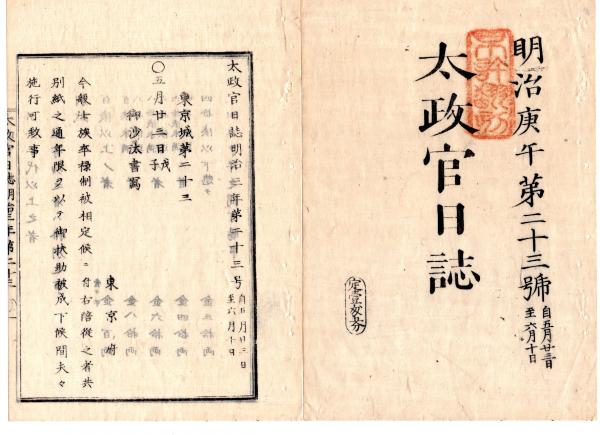 明治庚午第二十三號
自五月廿三日
至六月十日
太政官日誌
定價
太政官日誌明治三年第二十三号
自五月廿三日
至六月十日
東京城第二十三
〇五月廿三日戊子
御沙汰書寫
東京府
今般士族卒禄制被相定候ニ付右陪従之者共
別紙之通年限ヲ以テ御扶助被成下候間夫々
施行可致事
太政官日誌明治三年第二十三